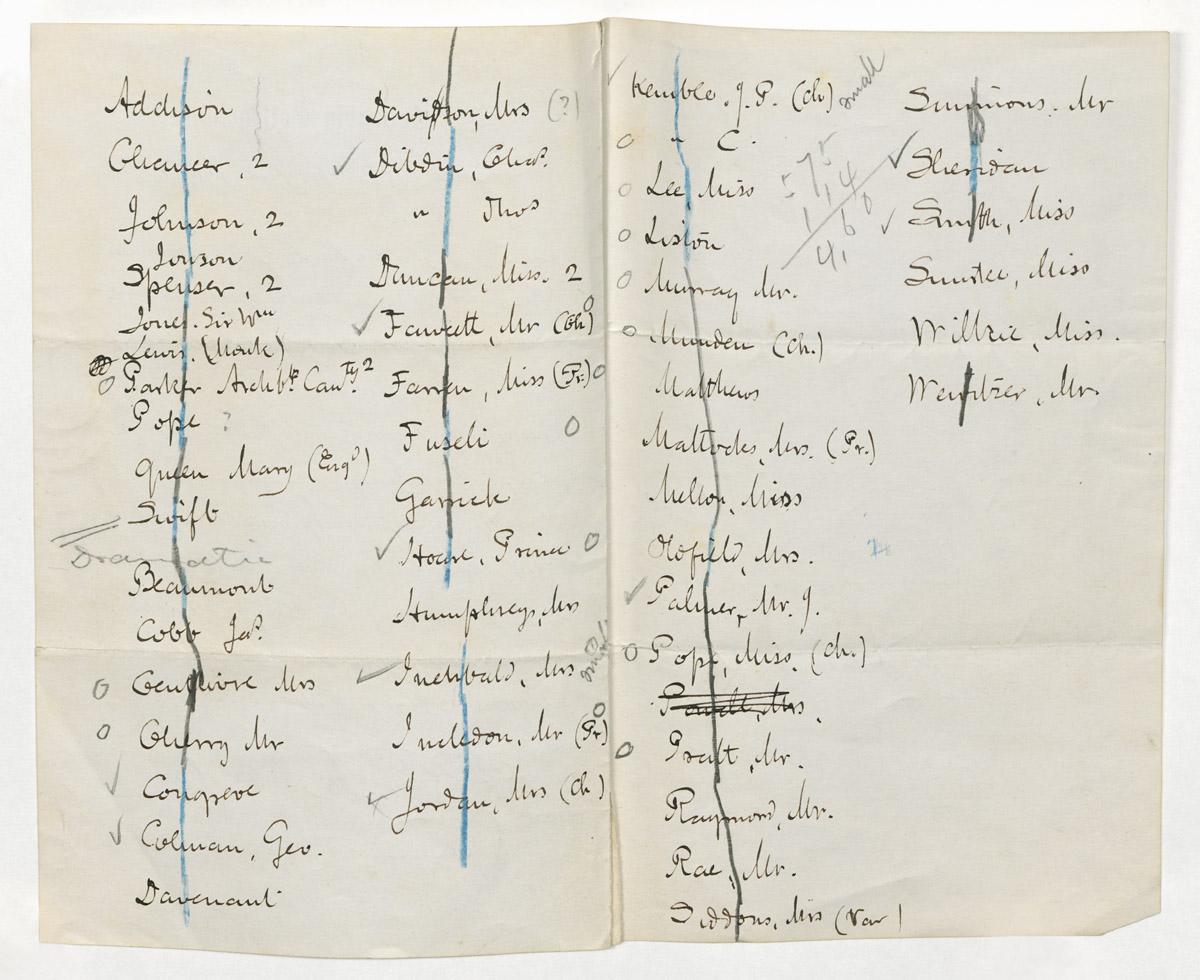 Addison
Chaucer, 2
Johnson, 2
Jonson
Spenser, 2
Jones. Sir Wm
Lewis. (Monk)
Parker Archbp. Canty. 2
Pope ?
Queen Mary (Engd)
Swift
Dramatic
Beaumont
Cobb Jas.
Centlivre Mrs
Cherry Mr
Congreve
Colman, Geo.
Davenant
Davidson, Mrs (?)
Dibdin, Chas.
" Thos
Duncan, Miss. 2
Fawcett, Mr (Ch)
Farren, Miss (Pr.)
Fuseli
Garrick
Hoare, Prince
Humphreys, Mrs
Inchbald, Mrs small
Incledon, Mr (Pr)
Jordan, Mrs (Ch)
Kemble, J. P. (Ch) small
" C.
Lee, Miss
Liston
Murray Mr.
Munden (Ch.)
Matthews
Mattocks, Mrs. (Pr.)
Mellon, Miss
Oldfield, Mrs.
Palmer, Mr. J.
Pope, Miss. (Ch.)
Powell, Mrs.
Pratt, Mr.
Raymond, Mr.
Rae, Mr.
Siddons, Mrs (Var)
Simmons. Mr
Sheridan
Smith, Miss
Smirke, Miss
Miss.
Wewitzer, Mr.